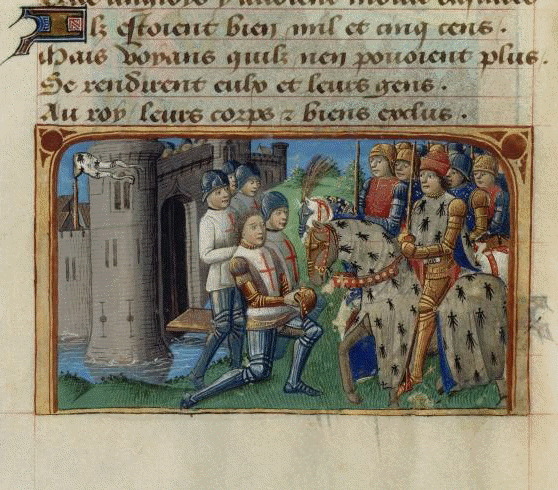 Ilz estoient bien mil et cinq cens.
Mais voyans quilz nen povoient plus.
Se rendirent eulx et leurs gens.
Au roy leurs corps z biens exclus.